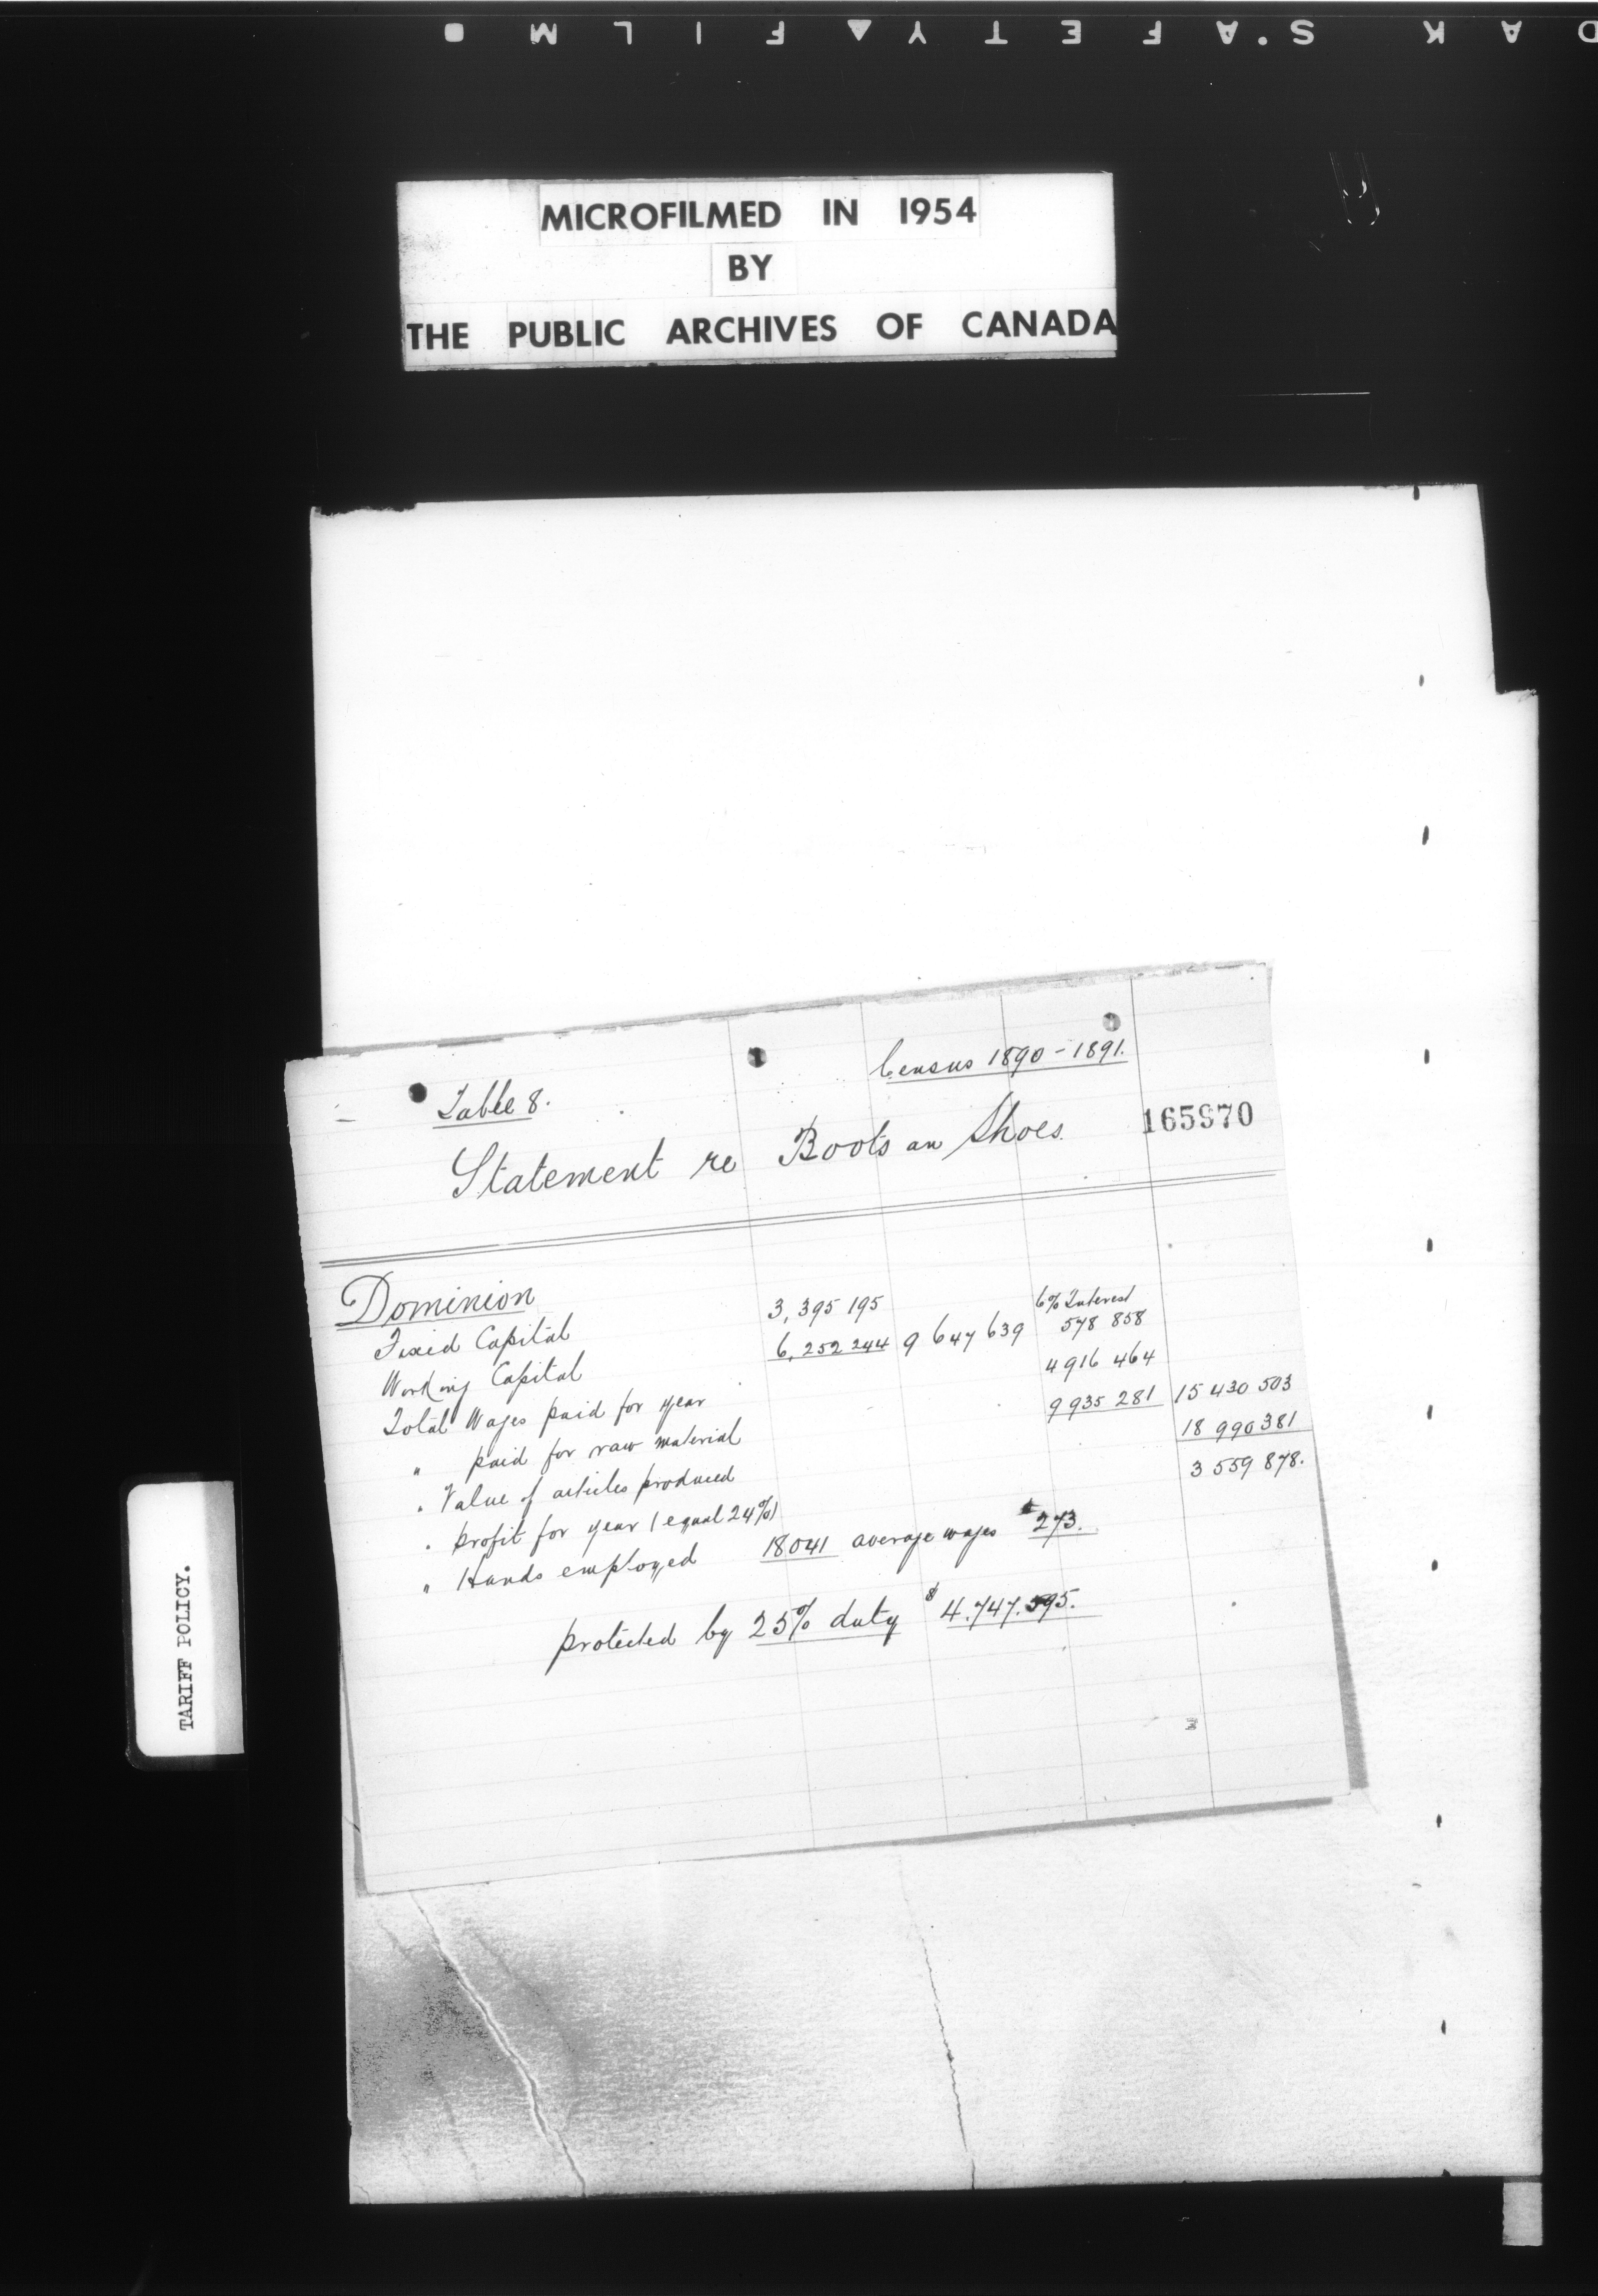 KODAK SAFETY FILM
MICROFILMED IN 1954
BY
THE PUBLIC ARCHIVES OF CANADA
Census 1890-1891.
Table 8.
Statement re Boots an Shoes
165970
Dominion
6% Interest
Fixed Capital 3,395 195
Working Capital 6,252 244 9 647 639 578 858
Total Wages paid for year 4 916 464
" paid for raw material 9 935 281 15 430 503
" Value of articles produced 18 990 381
" profit for year (equal 24%) 3 559 878.
" Hands employed 18041 average wages $273.
protected by 25% duty $4.747.595.
TARIFF POLICY.